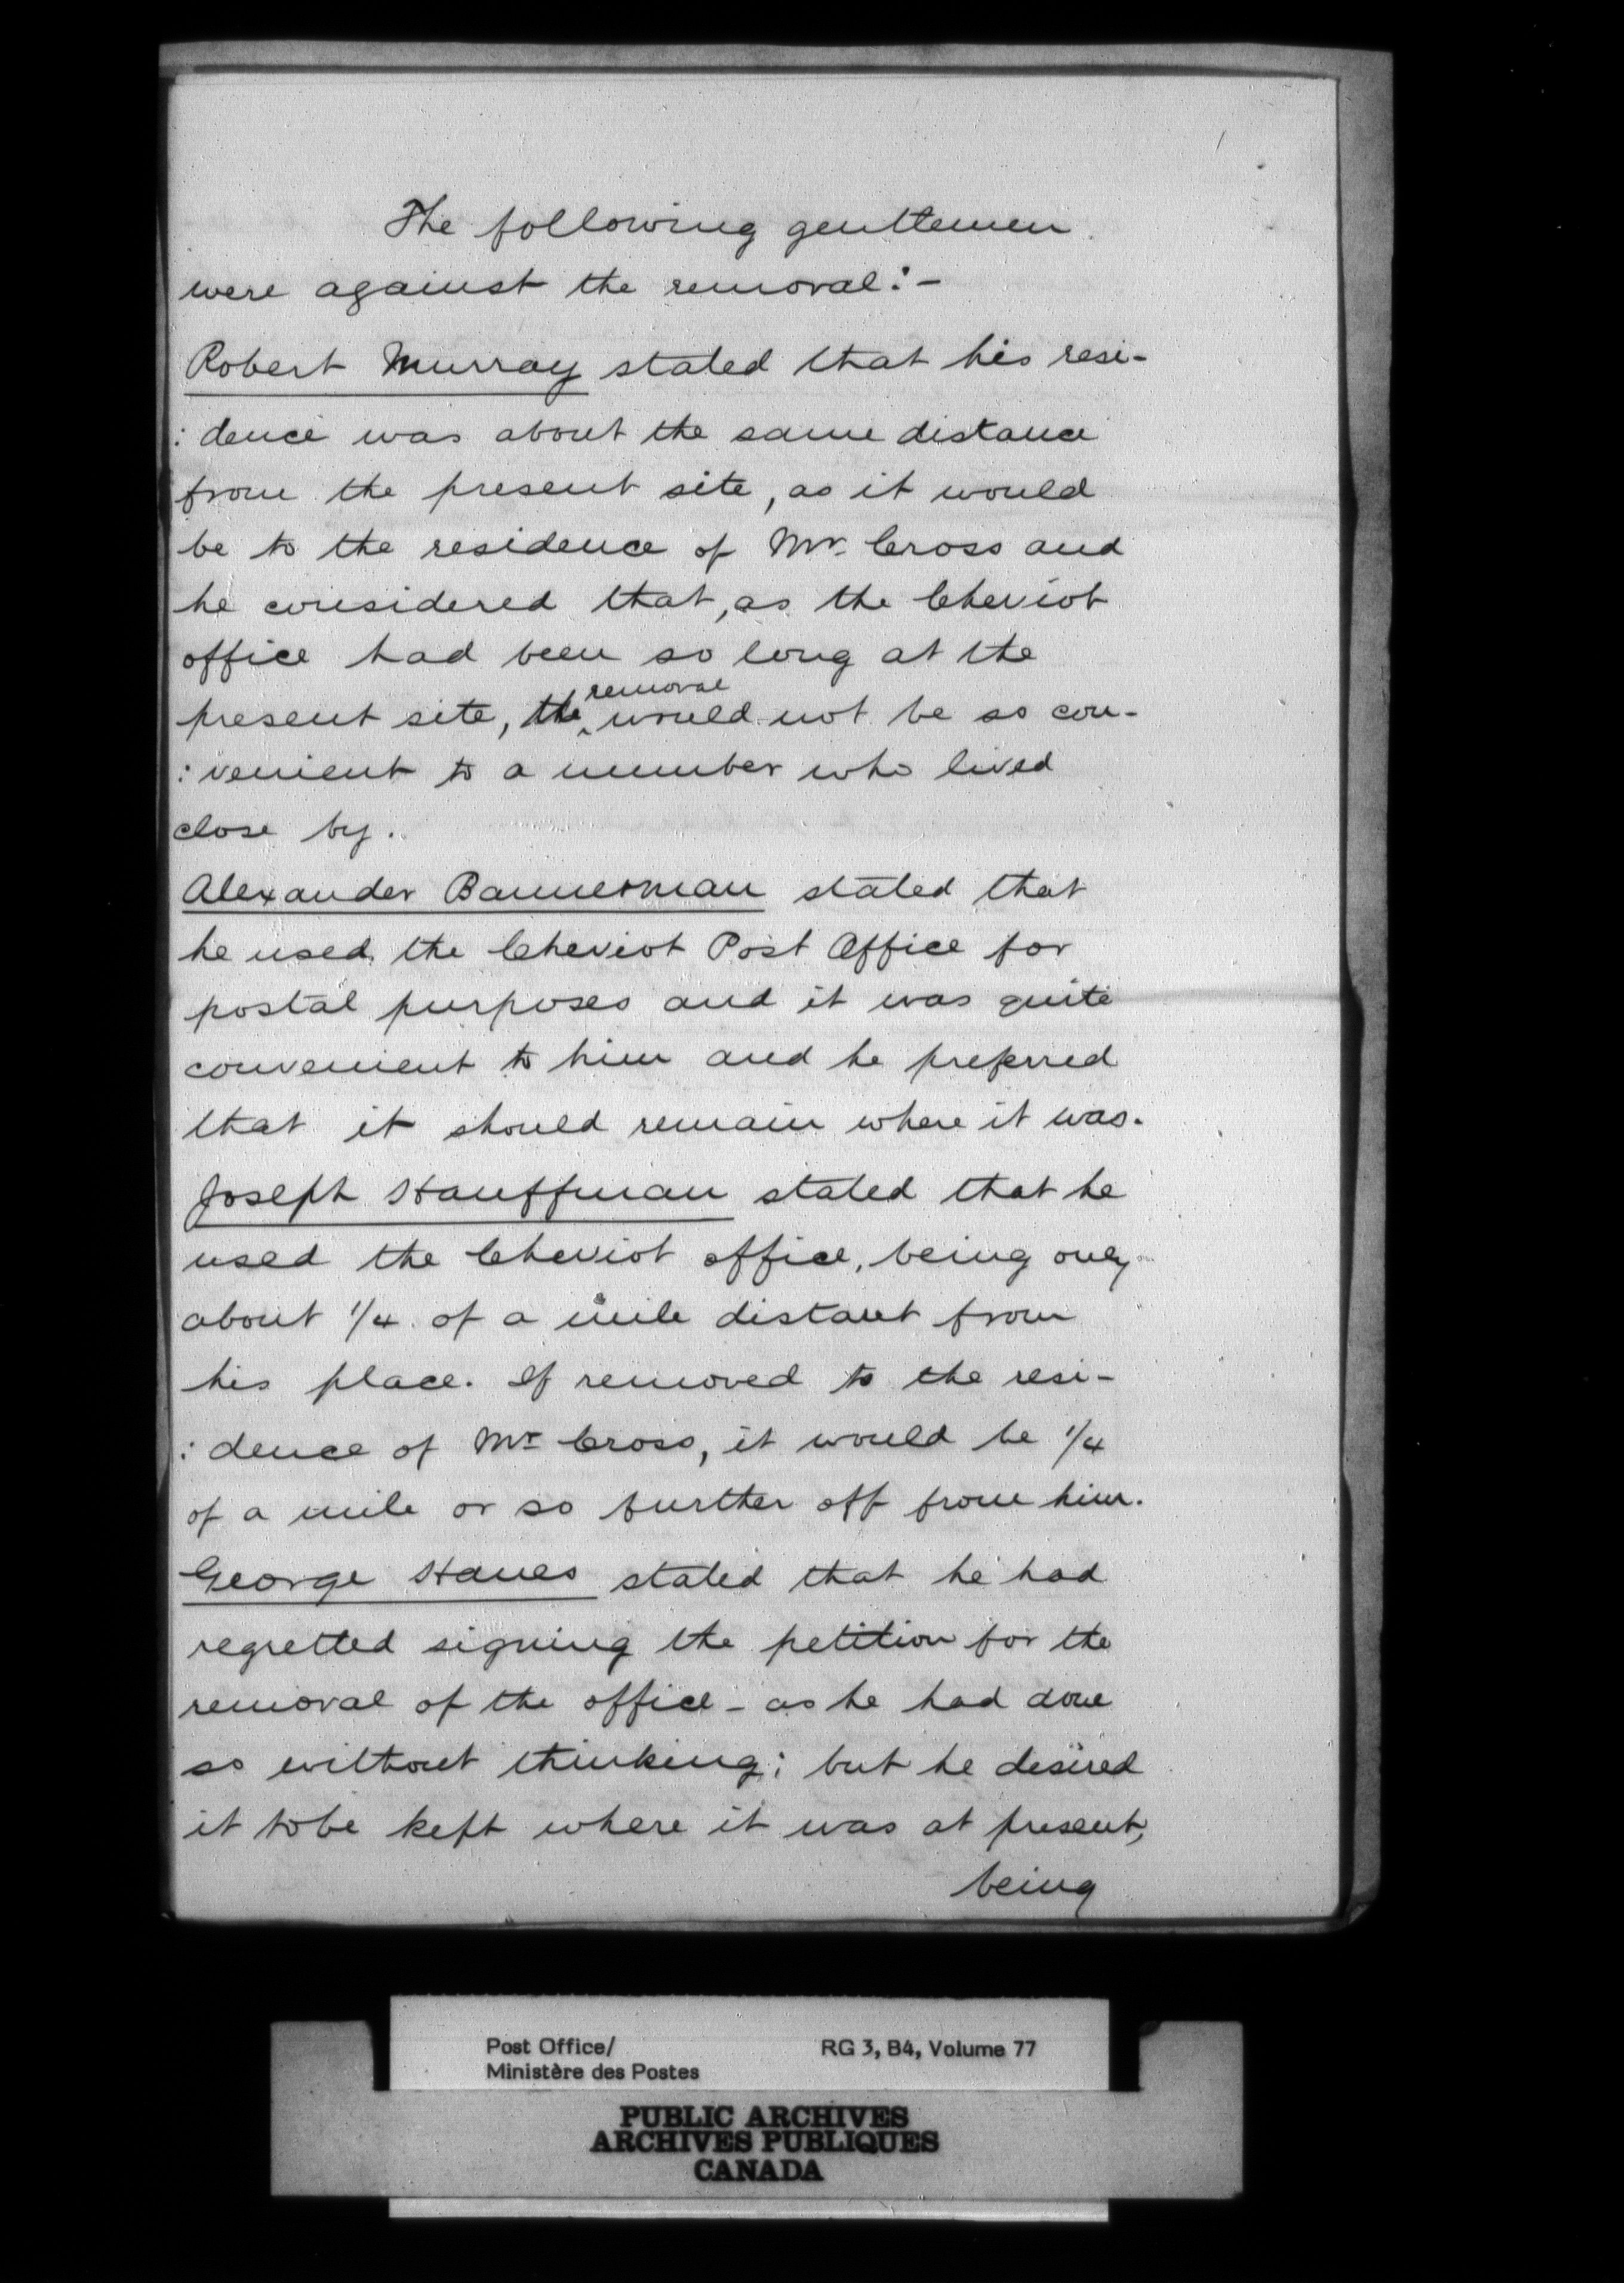 The following gentlemen
were against the removal:-
Robert Murray stated that his resi-
:dence was about the same distance
from the present site, as it would
be to the residence of Mr. Cross and
he considered that, as the Cheviot
office had been so long at the
present site, the removal would not be so con-
:venient to a number who lived
close by.
Alexander Bannerman stated that
he used the Cheviot Post Office for
postal purposes and it was quite
convenient to him and he preferred
that it should remain where it was.
Joseph Hauffman stated that he
used the Cheviot office, being only
about 1/4 of a mile distant from
his place. If removed to the resi-
:dence of Mr Cross, it would be 1/4
of a mile or so further off from him.
George Hanes stated that he had
regretted signing the petition for the
removal of the office - as he had done
so without thinking; but he desired
it to be kept where it was at present,
being
Post Office/ RG 3, B4, Volume 77
Ministère des Postes
PUBLIC ARCHIVES
ARCHIVES PUBLIQUES
CANADA